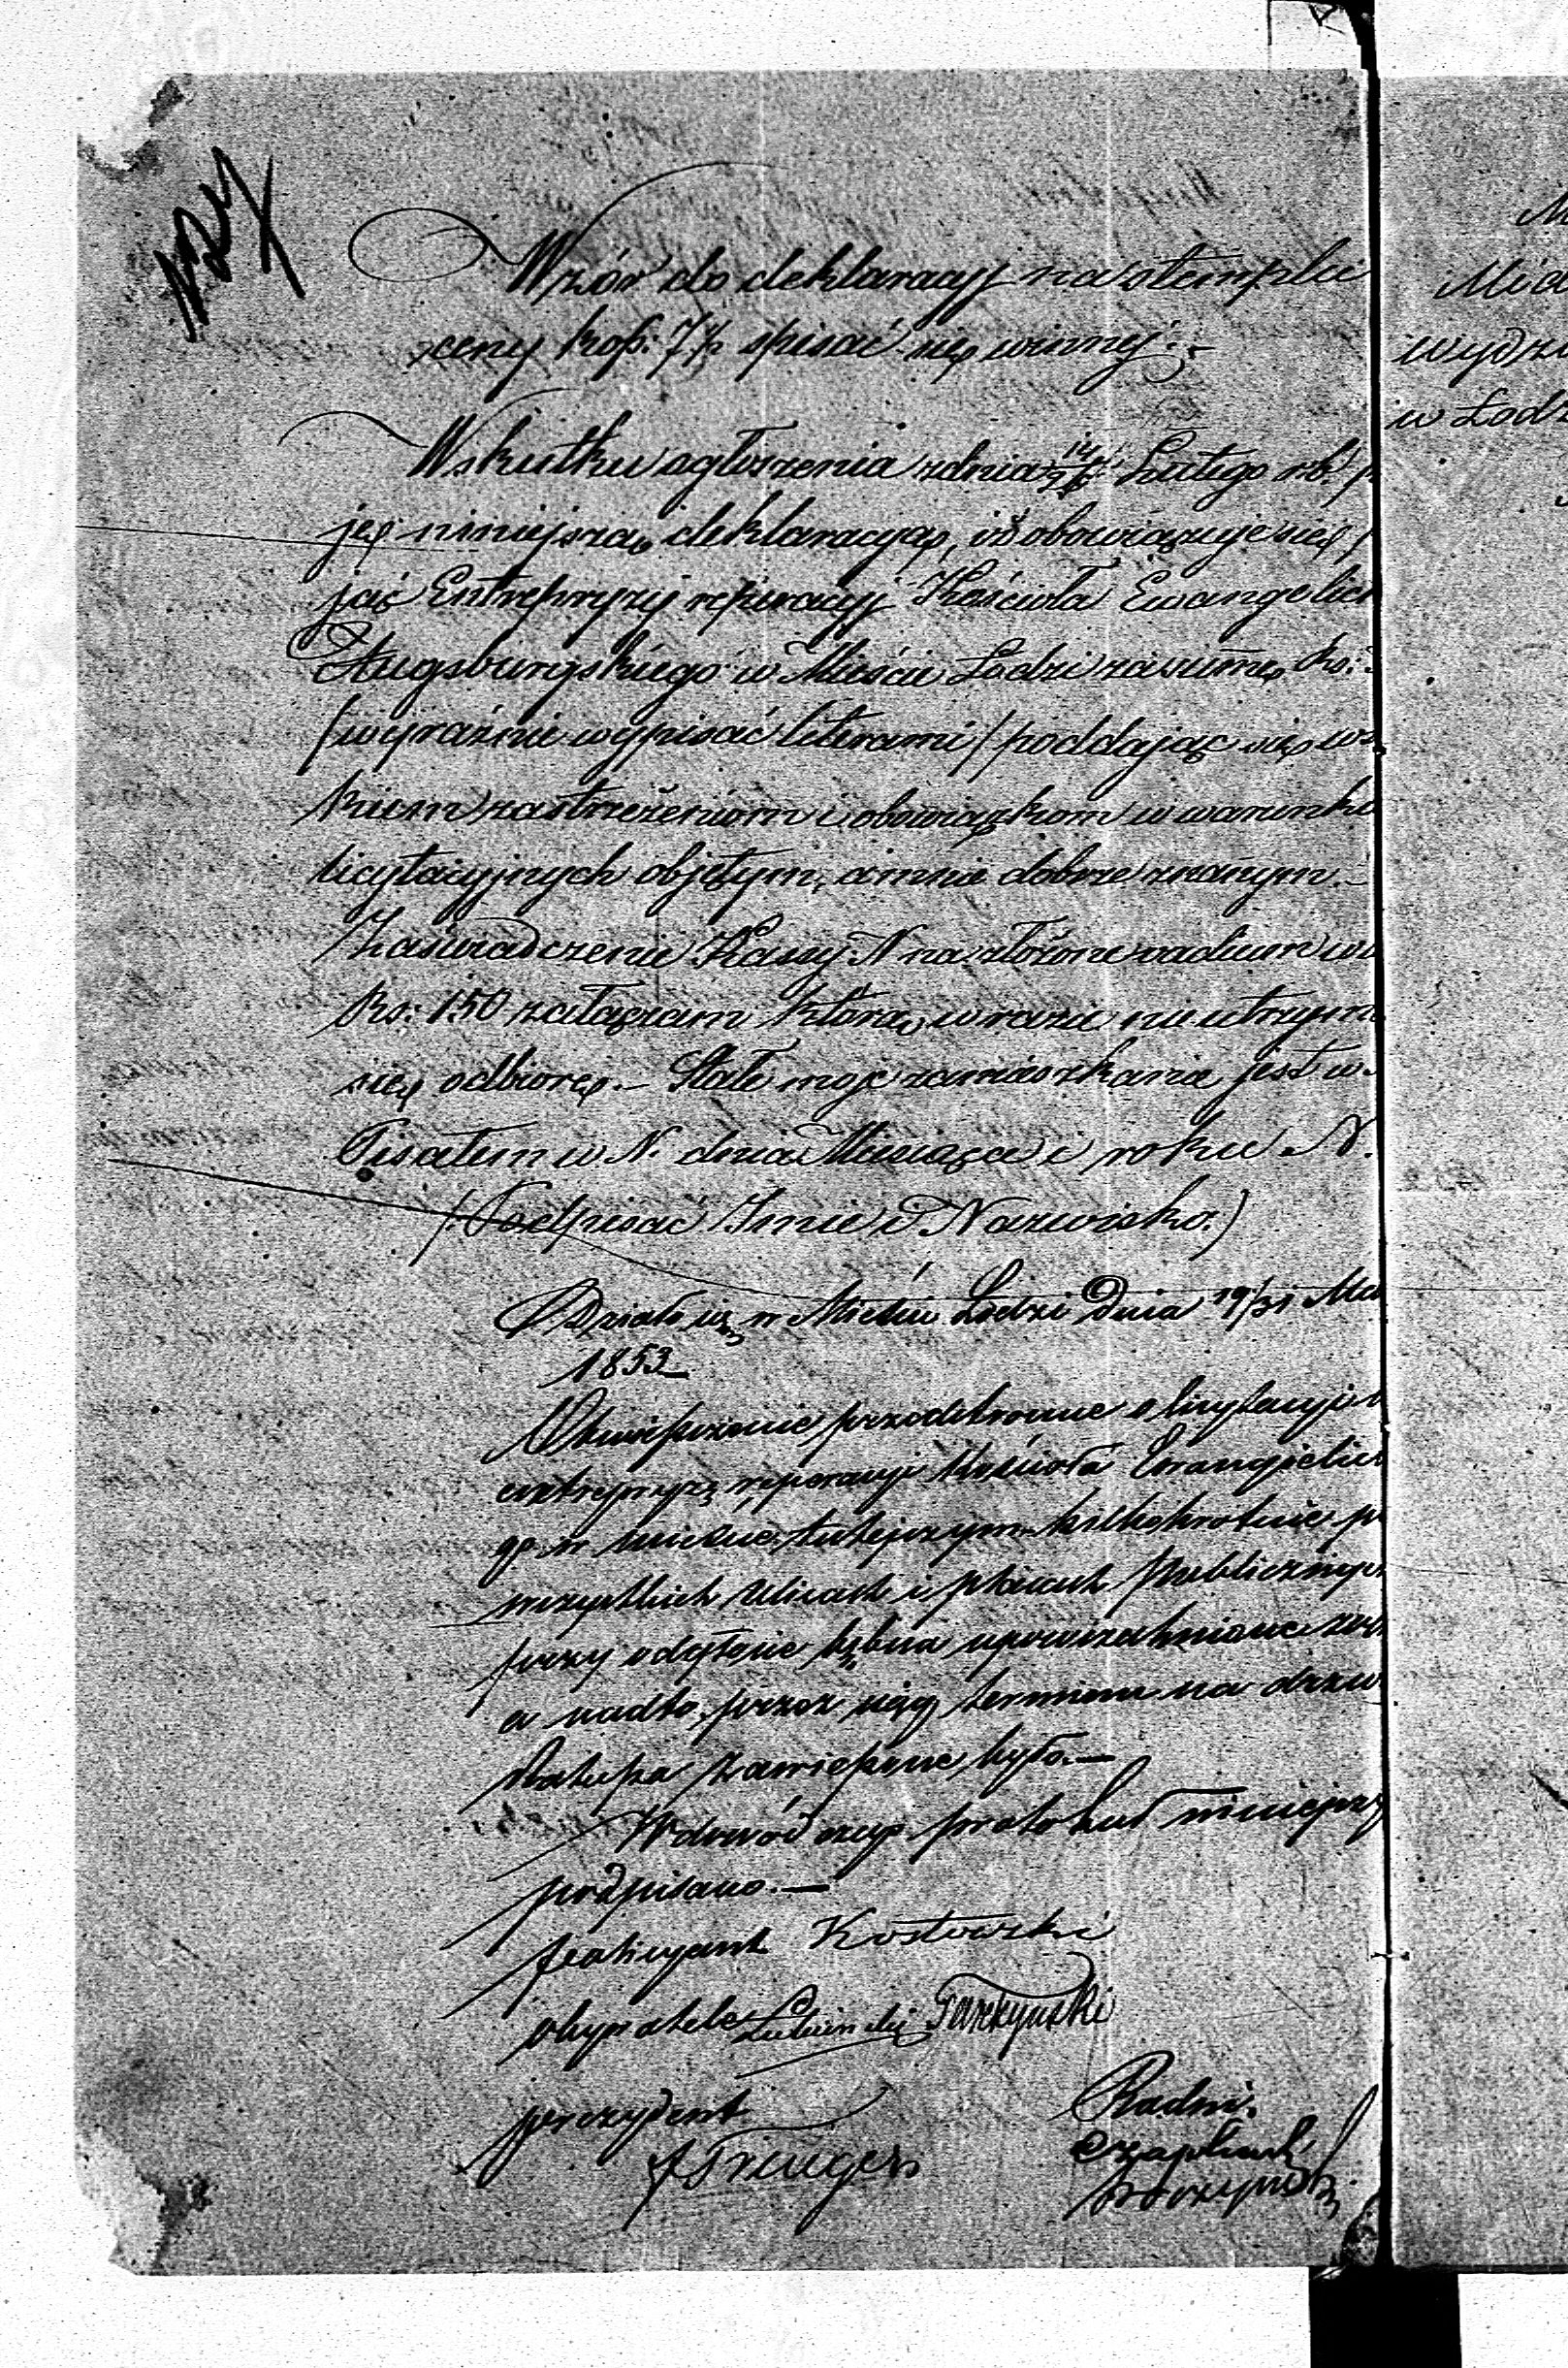 Wzór do deklaracyj na stemplu
ceny kop: 7½ spisać się winnej:
Wskutku ogłoszenia z dnia Lutego rb.
ję niniejszą deklaracyą, iż obowiązuje się
jąć Entrepryzy reperacyj Kościoła Ewangelick
Augsburgskiego w Mieście Łodzi za summę Rs:
(wyraźnie wypisać literami) poddając się ws
kiem zastrzeżeniom i obowiązkom w warunka
licytacyjnych objętym, a mnie dobrze znanym.—
Zaświadczenie Kassy N na złożone vadium w
Rs: 150 załączam które, w razie nie utrzym
się odbiorę.— Stałe moje zamieszkanie jest w
Pisałem w N. dnia Miesiąca i roku N.
(Podpisać Imie i Nazwisko.)
Działo się w Mieście Łodzi Dnia 19/31 Ma
1853
Obwieszczenie przodstronne o licytacyi
entrepryzę reperacyi Kościoła Ewangielic
go w mieście tutejszym kilkokrotnie p
wszystkich Ulicach i placach Publicznyc
przy odgłosie bębna upowszechnione zos
a nadto przez ciąg terminu na drzw
Ratusza zamieszczone było.—
W dowód czego protokuł niniejszy
podpisano.—
Policyant Kosłowski
obywatele
prezydent
Radni.
Mia
wydz
w Łodz